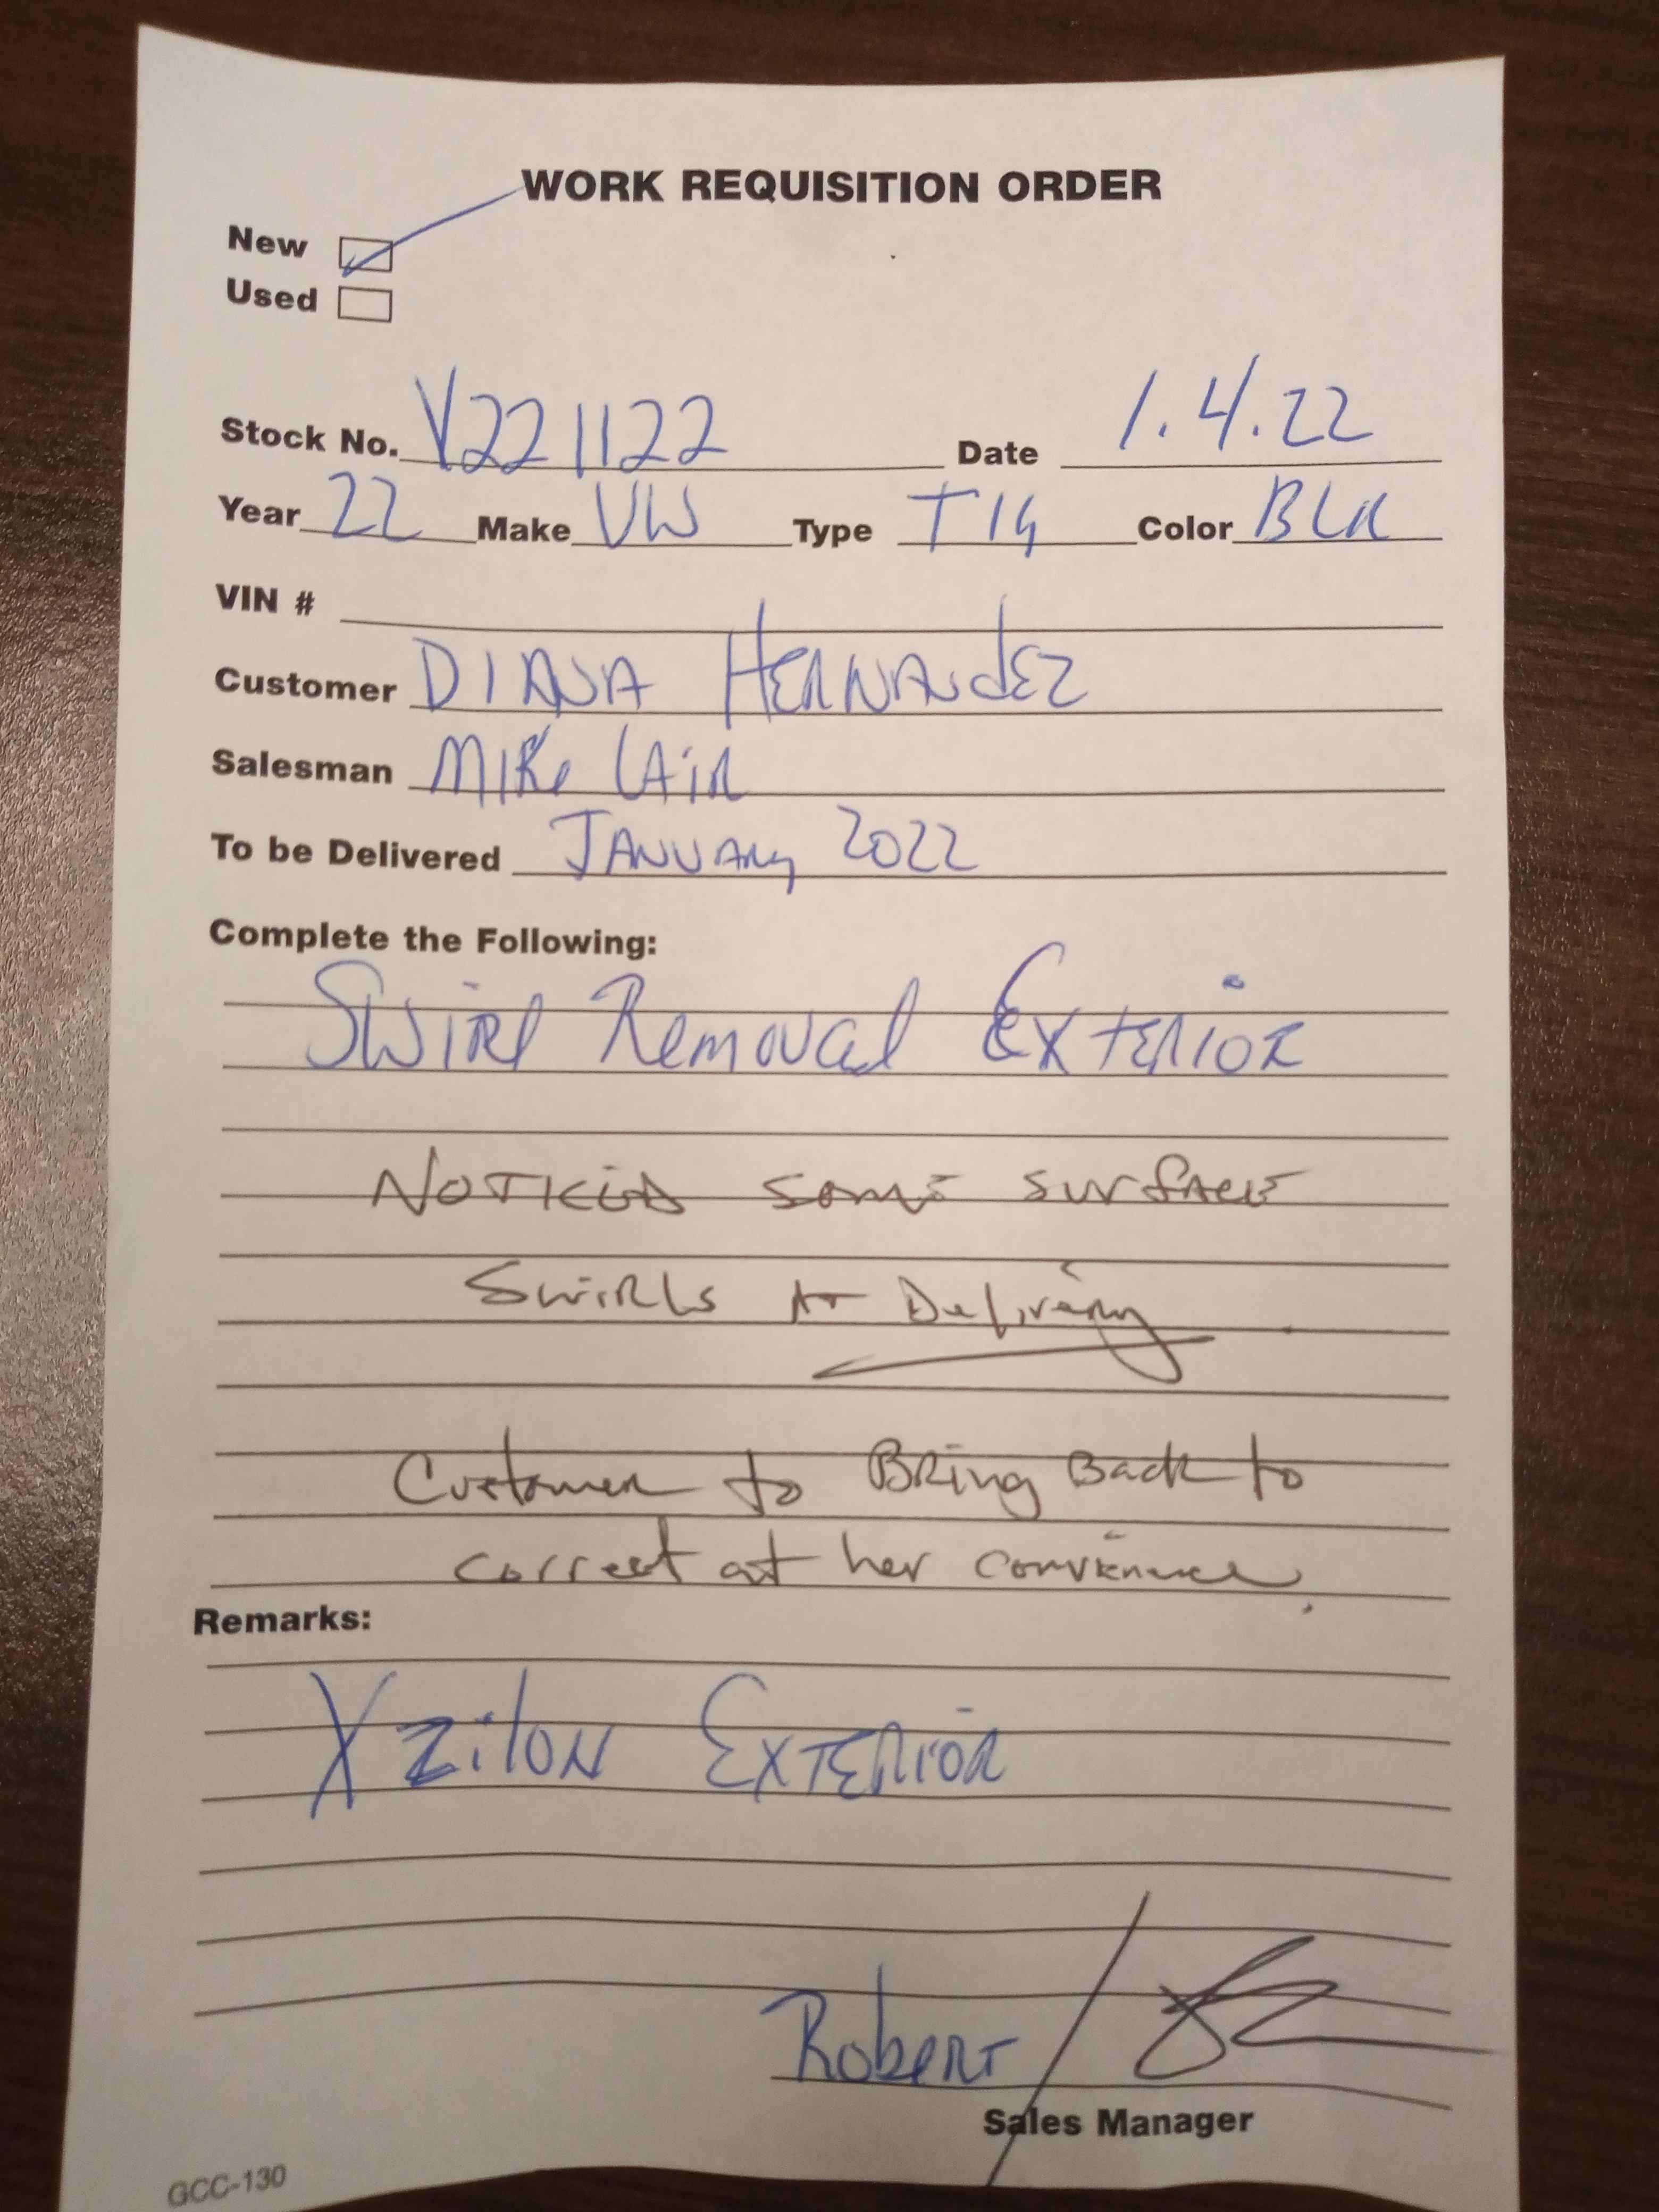 WORK REQUISITION ORDER
New
Used
Stock No. V221122 Date 1.4.22
Year 22 Make VW Type TIG Color BLK
VIN #
Customer DIANA HERNANDEZ
Salesman MIKE LAIR
To be Delivered JANUARY 2022
Complete the Following:
SWIRL REMOVAL EXTERIOR
NOTICED SOME SURFACE
SWIRLS AT Delivery
Customer to Bring Back to
correct at her convenience.
Remarks:
XZILON EXTERIOR
Robert /
Sales Manager
GCC-130